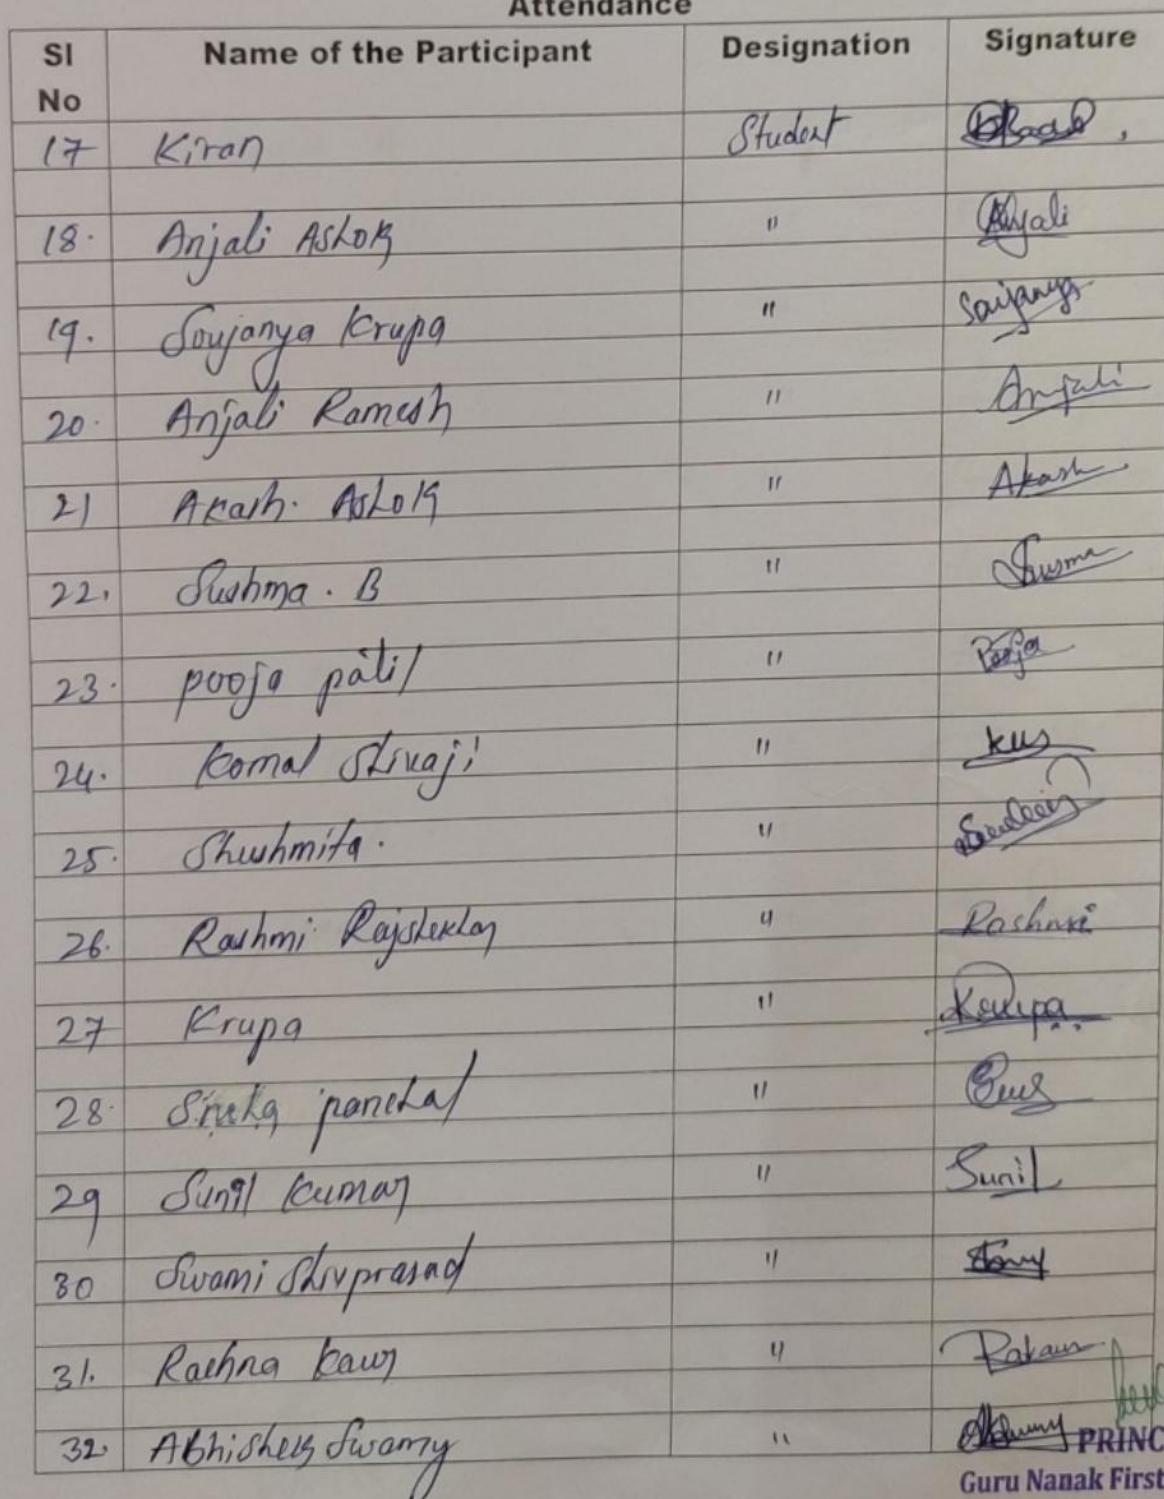 Attendance
Sl No Name of the Participant Designation Signature
17 Kiran Student
18. Anjali Ashok " Anjali
19. Soujanya Krupa " Soujanya
20. Anjali Ramesh " Anjali
21 Akash. Ashok " Akash
22. Sushma. B " Susma
23. pooja patil " Pooja
24. Komal Shivaji "
25. Shushmita. "
26. Rashmi Rajshekhar " Rashmi
27 Krupa " Krupa
28. panchal "
29 Sunil Kumar " Sunil
30 Swami Shivprasad "
31. Rachna Kaur "
32. Abhishek Swamy "
PRINC
Guru Nanak First